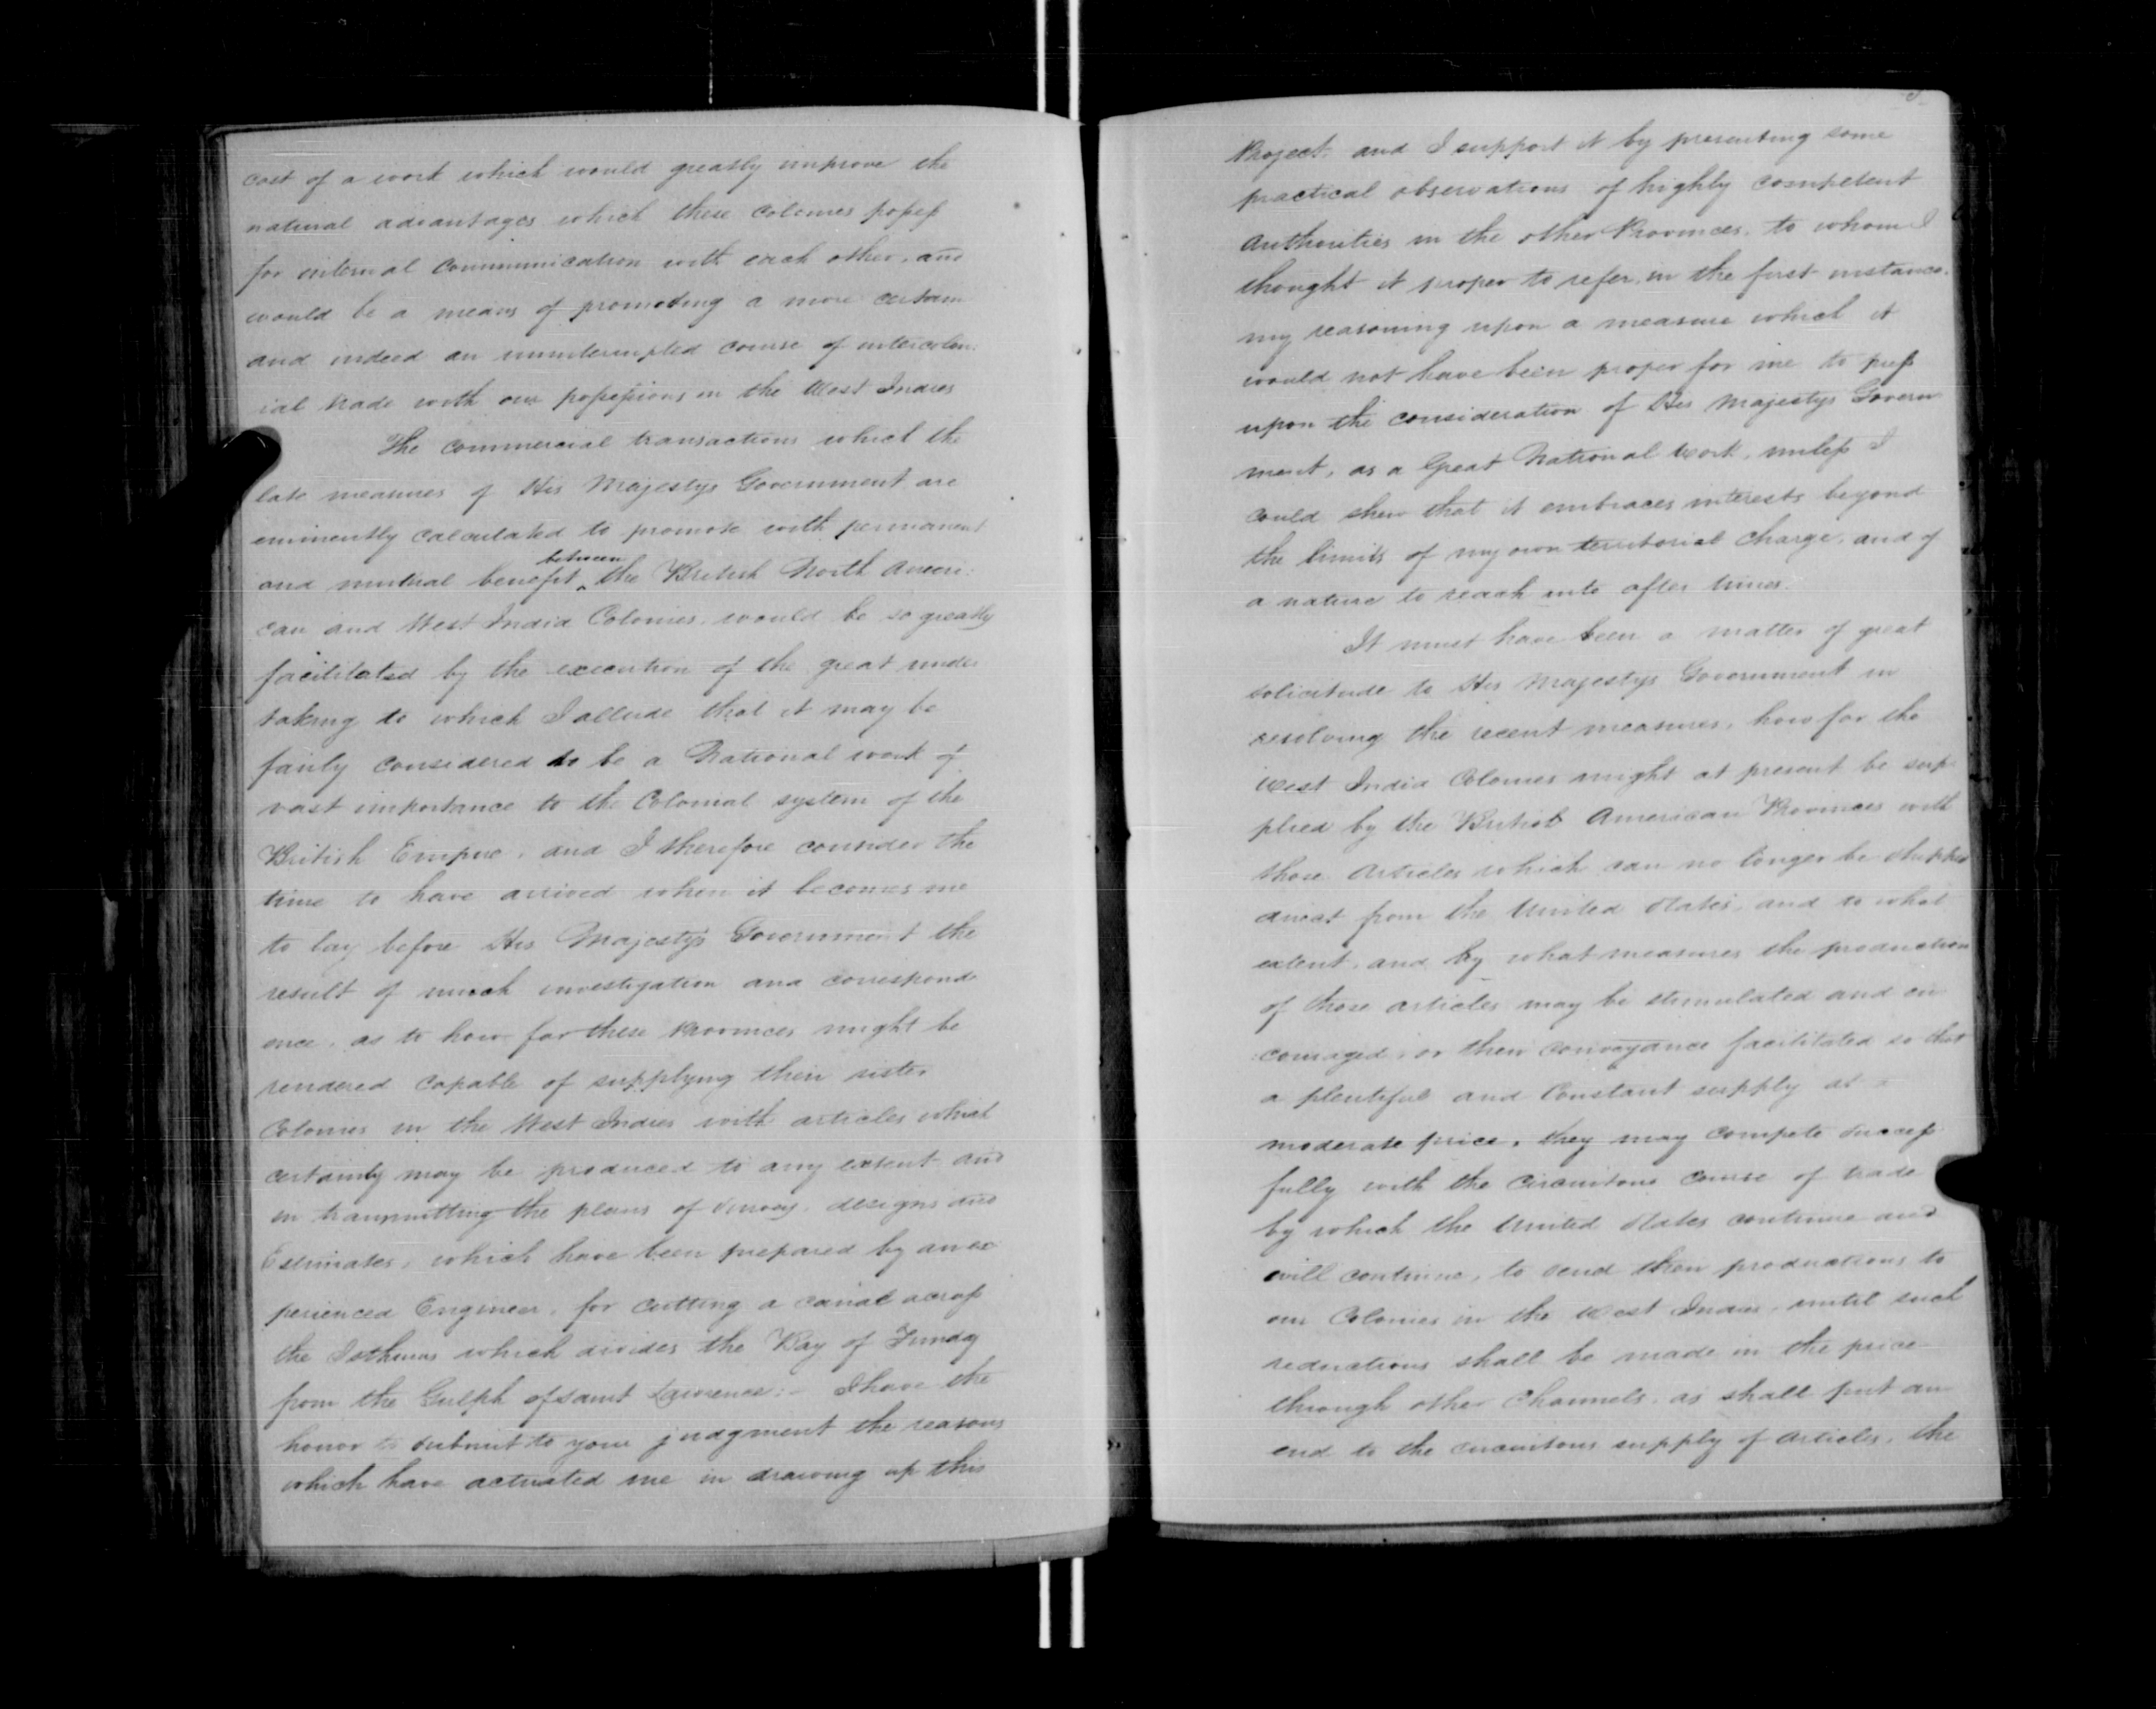 cost of a work which would greatly improve the
natural advantages which these Colonies possess
for internal Communication with each other, and
would be a means of promoting a more certain
and indeed an uninterrupted course of intercolon:
ial trade with our possessions in the West Indies
The Commercial transactions which the
late measures of His Majestys Government are
eminently calculated to promote with permanent
between
and mutual benefit ‸ the British North Ameri:
can and West India Colonies, would be so greatly
facilitated by the execution of the great under
taking to which I allude that it may be
fairly considered to be a National work of
vast importance to the Colonial system of the
British Empire, and I therefore consider the
time to have arrived when it becomes me
to lay before His Majestys Government the
result of much investigation and correspond
ence, as to how far these Provinces might be
rendered capable of supplying their sister
Colonies in the West Indies with articles which
certainly may be produced to any extent and
in transmitting the plans of survey, designs and
Estimates, which have been prepared by an ex
perienced Engineer, for cutting a canal across
the Isthmus which divides the Bay of Fundy
from the Gulph of saint Lawrence:- I have the
honor to submit to your judgment the reasons
which have actuated me in drawing up this
Project. and I support it by presenting some
practical observations of highly competent
Authorities in the other Provinces, to whom I
thought it proper to refer, in the first instance,
my reasoning upon a measure which it
would not have been proper for me to press
upon the consideration of His Majestys Govern
ment, as a Great National Work, unless I
could shew that it embraces interests beyond
the limits of my own territorial Charge, and of
a nature to reach into after times.
It must have been a matter of great
solicitude to His Majestys Government in
resolving the recent measures, how far the
West India Colonies might at present be sup
plied by the British American Provinces with
those Articles which can no longer be shipped
direct from the United States, and to what
extent, and by what measures the production
of those articles may be stimulated and en
couraged, or their conveyance facilitated so that
a plentiful and Constant supply at
moderate price, they may compete success
fully with the Circuitous course of trade
by which the United States continue and
will continue, to send their productions to
our Colonies in the West Indies, until such
reductions shall be made in the price
through other Channels, as shall put an
end to the circuitous supply of Articles, the